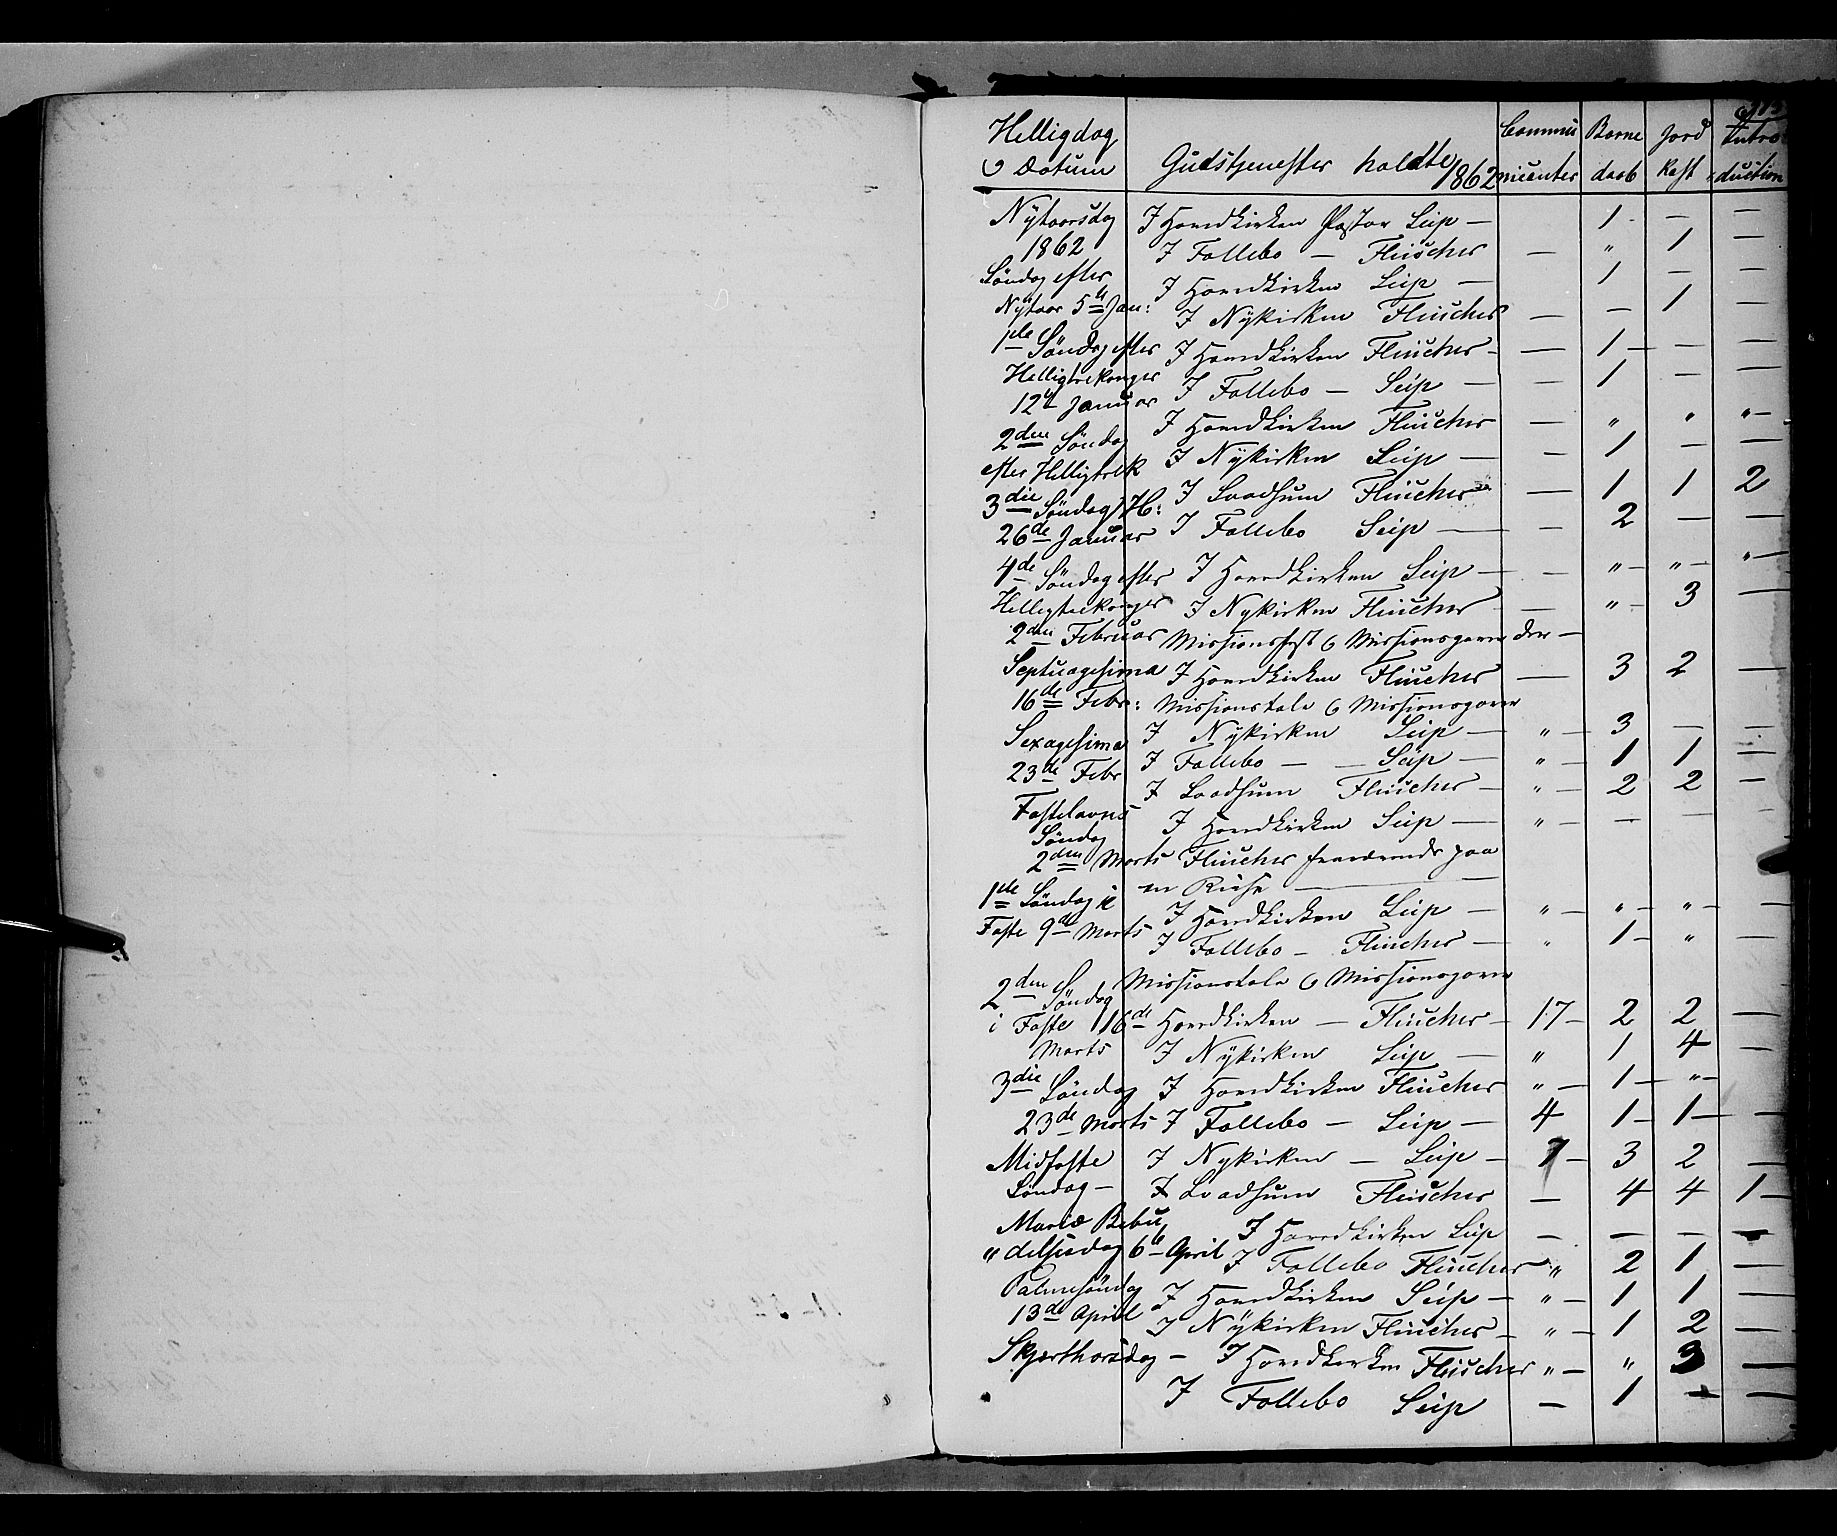 Helligdag Commu Barne Jord Intro
& Datum Gudstjenester holdte 1862 nicenter daab kast duction
Nytaarsdag I Hovedkirken Pastor Seip — 1 - — —
1862 I Follebo — Fleischer — " 1 —
Søndag efter I Hovedkirken Seip — 1 — —
Nytaar 5te Jan: I Nykirken Fleischer — — 1 —
1ste Søndag efter I Hovedkirken Fleischer - — 1 — — —
Helligtrekonger I Follebo — Seip — — 1 — —
12te Januar I Hovedkirken Fleischer — " " "
2den Søndag I Nykirken Seip — — 1 — —
efter Helligtrek
3die Søndag H: I Laadsum Fleischer — 1 1 2
26de Januar I Follebo Seip — — 2 — —
4de Søndag efter I Hovedkirken Seip — — " — " — "
Helligtrekonger I Nykirken Fleischer — " — 3 —
2den Februar Missionsfest & Missionsgaver —
Septuagesima I Hovedkirken Fleischer — 3 2 —
16de Febr: Missionstale & Missionsgaver
Sexagesima I Nykirken Seip — " — 3 — —
23de Febr I Follebo — — Seip — " — 1 1 —
Fastelavns I Laadsum Fleischer — " — 2 2 —
Søndag I Hovedkirken Seip — " — — —
2den Marts Fleischer fraværende paa
en Reise —
1ste Søndag i I Hovedkirken Seip — " — " — " — —
Faste 9de Marts I Follebo — Fleischer — " 1 — " —
2den Søndag Missionstale & Missionsgaver
i Faste 16de Hovedkirken — Fleischer — 17 — 2 2 —
Marts I Nykirken Seip — " 1 4 —
3die Søndag I Hovedkirken Fleischer " — 1 — " —
23de Marts I Follebo — Seip — 4 1 — 1 — —
Midfaste I Nykirken — Seip — 7 — 3 2 —
Søndag — I Laadsum Fleischer — 4 4 1 —
Mariæ Bebu I Hovedkirken Seip — — — —
" delsesdag 6te April I Follebo Fleischer " 2 1 —
Palmesøndag I Hovedkirken Seip — " — 1 1 —
13de April I Nykirken Fleischer — " — 1 2 —
Skjærthorsdag — I Hovedkirken Fleischer " — " 3 —
I Follebo Seip — 1 — —